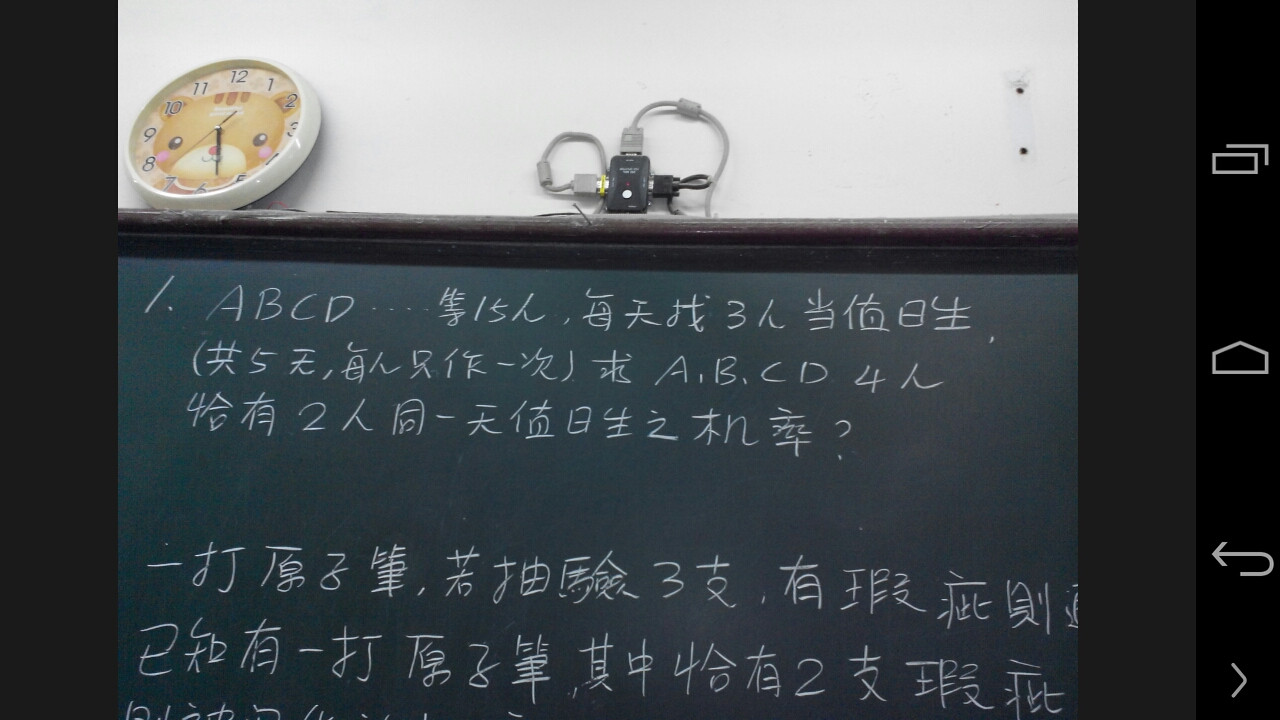 12
11
1
10
2
9
3
8
7
6
5
1. ABCD ‥‥ 等15人, 每天找 3人 当值日生,
(共5天,每人只作一次) 求 A.B.CD 4人
恰有 2人同一天值日生之机率?
一打原子筆,若抽驗 3支,有瑕疵則
已知有一打原子筆,其中恰有2支瑕疵